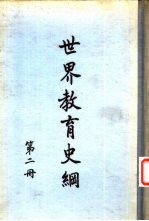 世界教育史綱
第二册